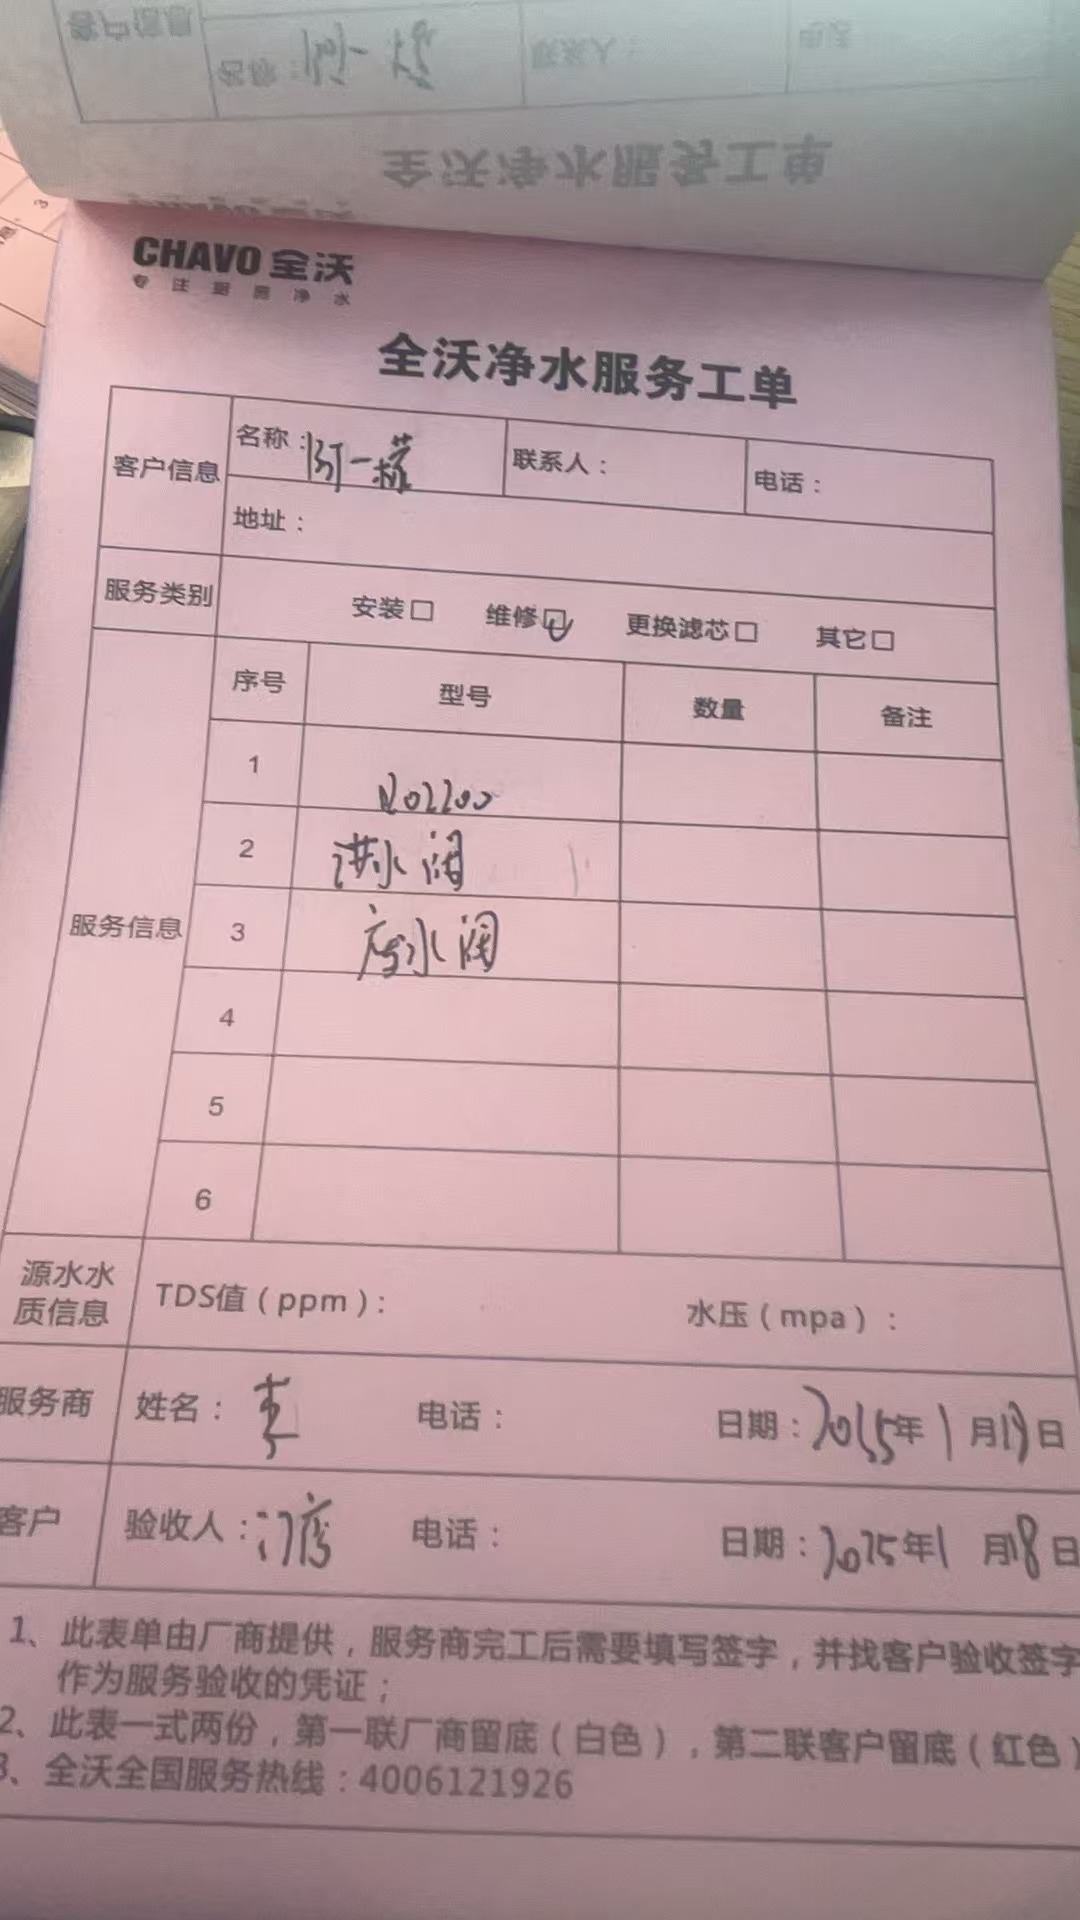 客户信息
名称：
联系人：
电话
全沃净水服务工单
CHAVO 全沃
专注厨房净水
全沃净水服务工单
客户信息 名称：阿一 联系人： 电话：
地址：
服务类别 安装□ 维修☑ 更换滤芯□ 其它□
服务信息
序号 型号 数量 备注
1
2 进水阀
3 废水阀
4
5
6
源水水质信息 TDS值（ppm）： 水压（mpa）：
服务商 姓名： 电话： 日期：2025年1月 日
客户 验收人：门店 电话： 日期：2025年1月18日
1、此表单由厂商提供，服务商完工后需要填写签字，并找客户验收签字
作为服务验收的凭证；
2、此表一式两份，第一联厂商留底（白色），第二联客户留底（红色）
3、全沃全国服务热线：4006121926